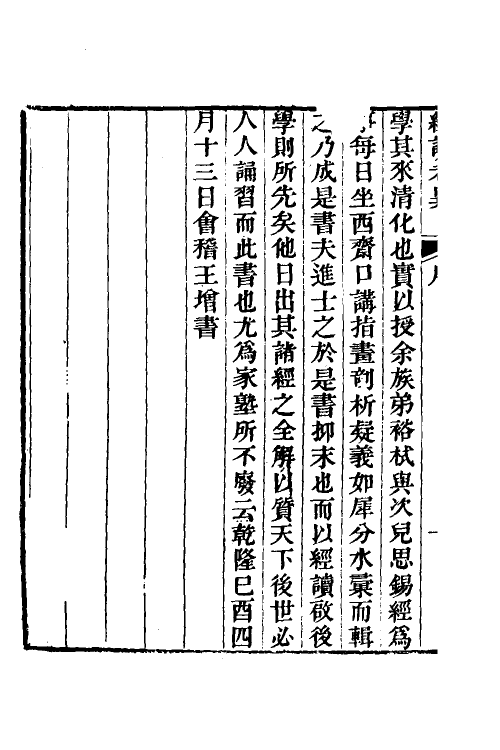 經讀考異
序
一
學其來清化也實以授余族弟裕栻與次兒思錫經爲
每日坐西齋口講指畫剖析疑義如犀分水彙而輯
之乃成是書夫進士之於是書抑末也而以經讀啟後
學則所先矣他日出其諸經之全解以質天下後世必
人人誦習而此書也尤爲家塾所不廢云乾隆巳酉四
月十三日會稽王增書